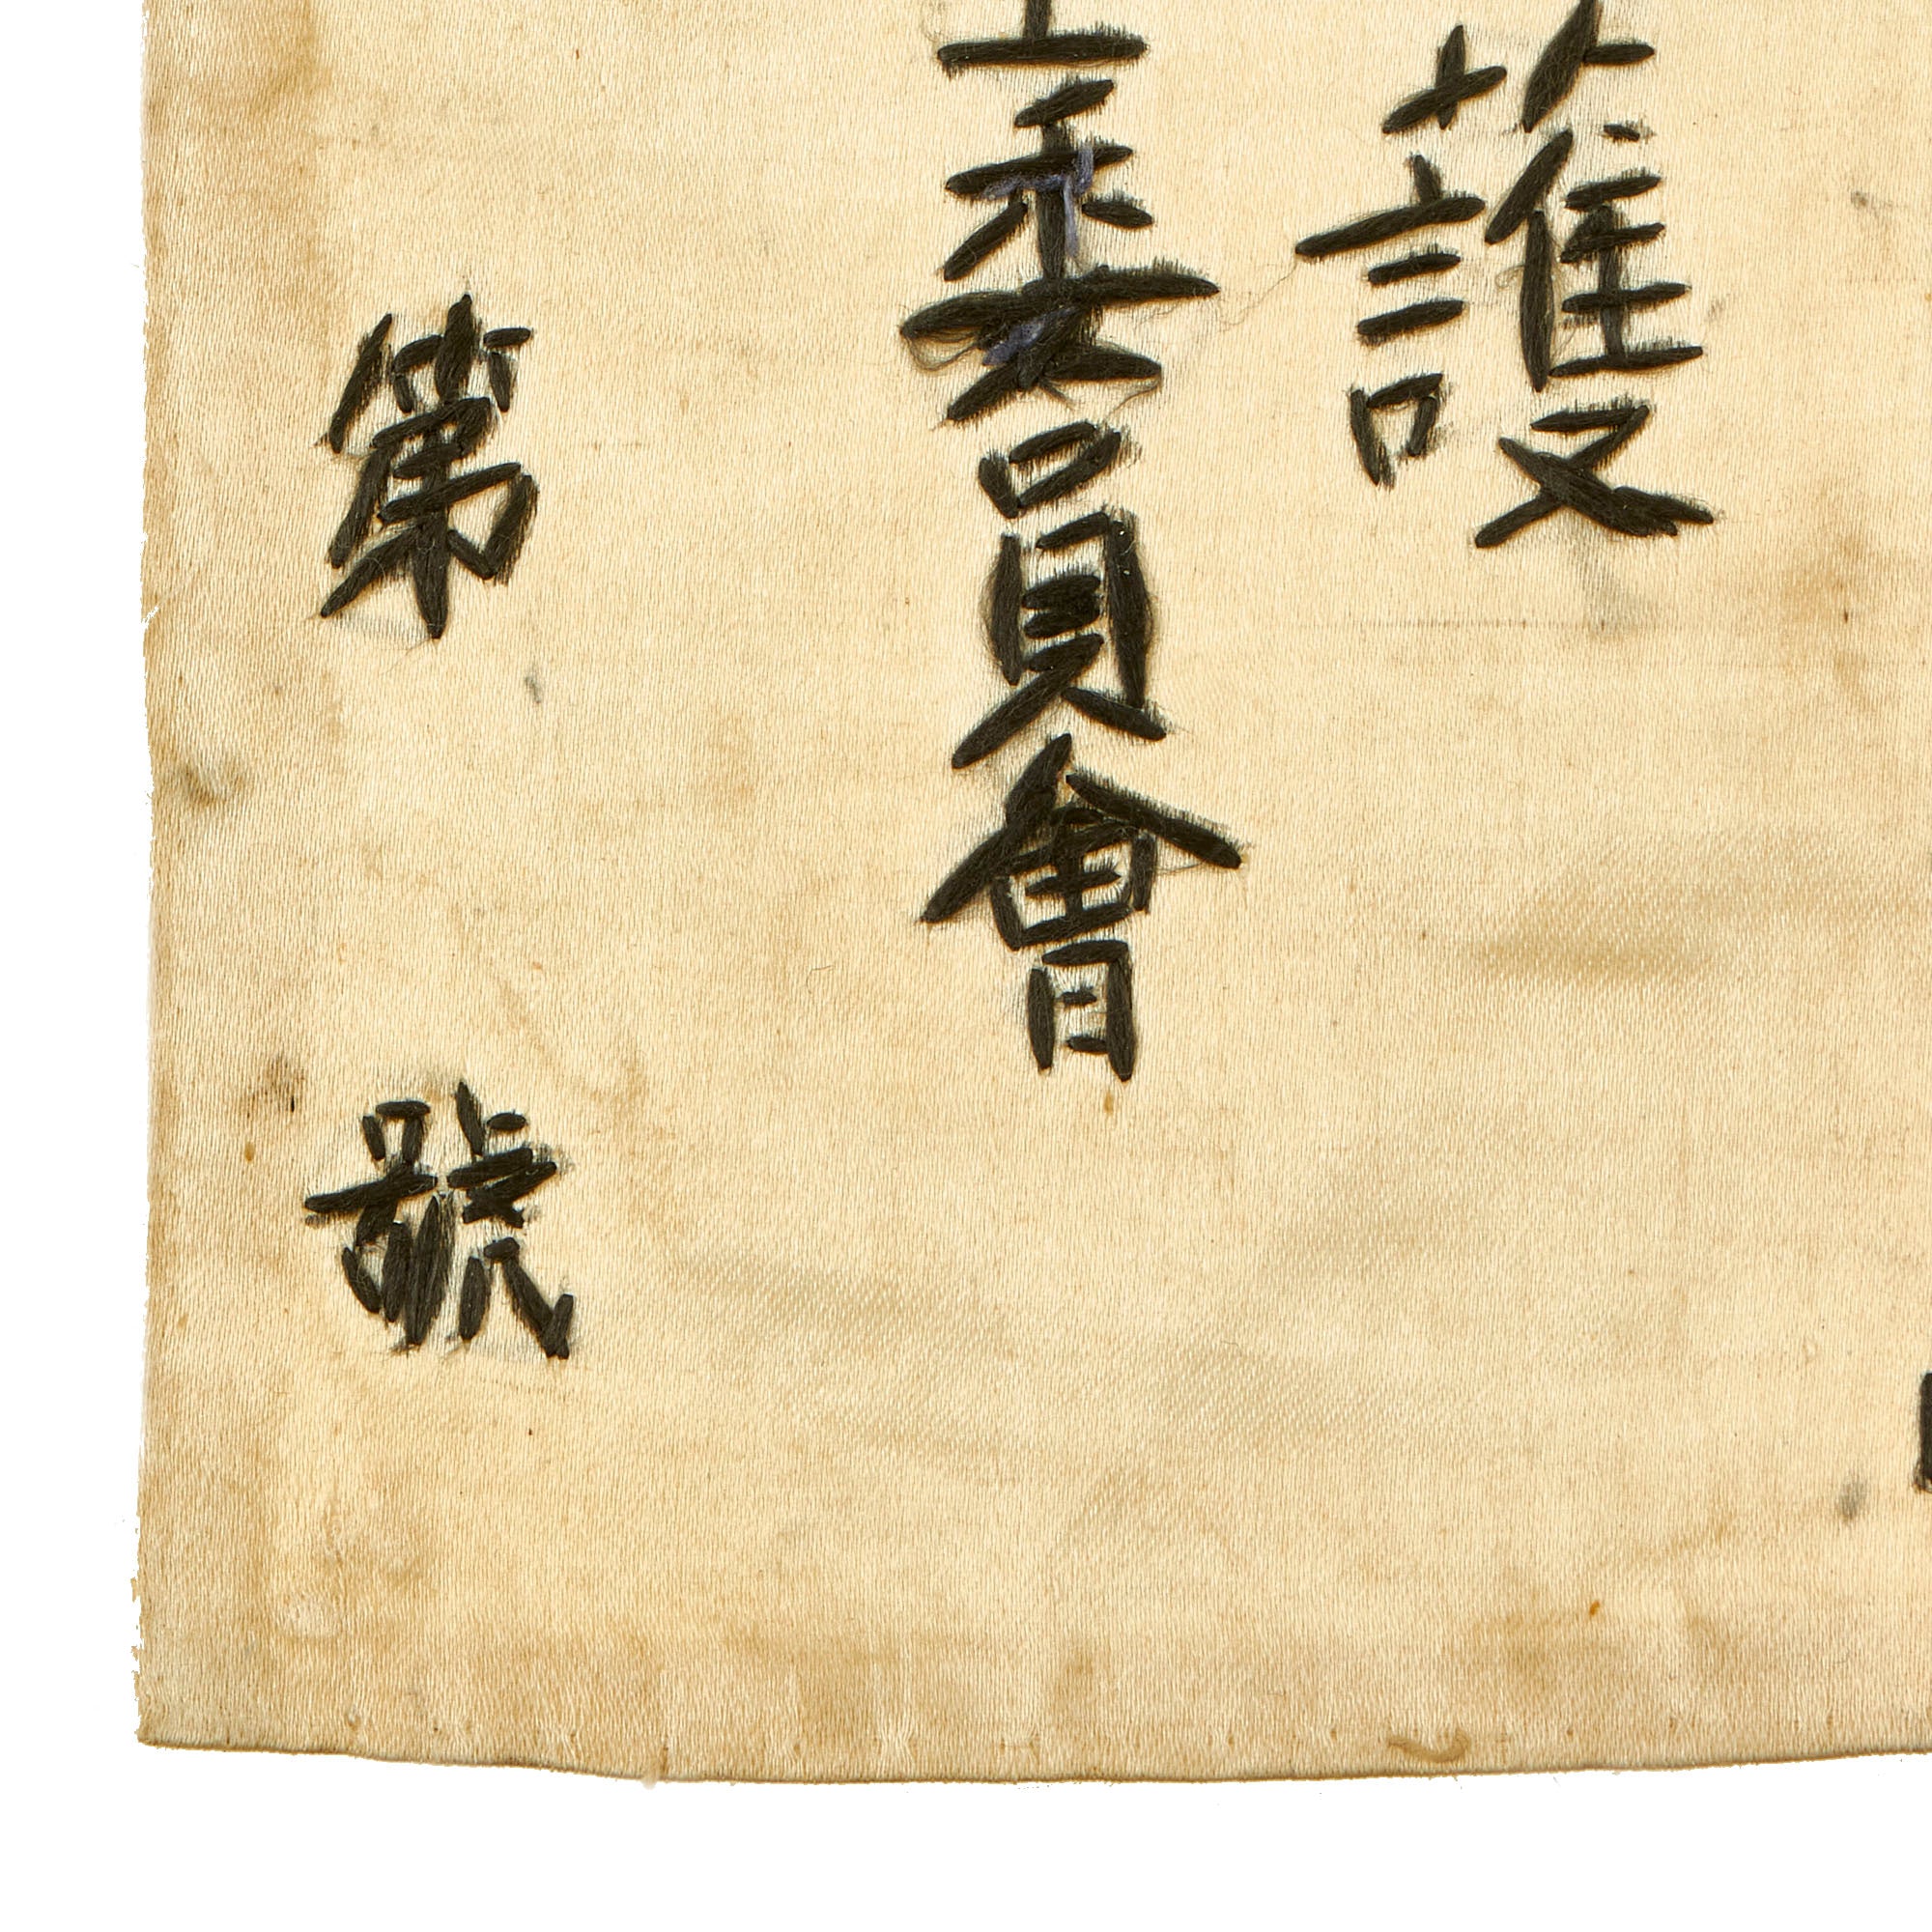 護
委員會
第 號